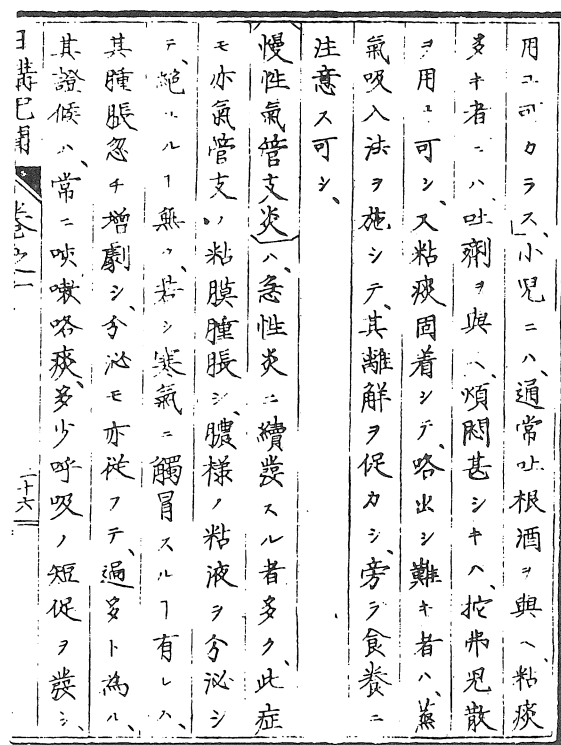 用ユ可カラス、小兒ニハ、通常吐根酒ヲ與ヘ、粘痰
多キ者ニハ、吐劑ヲ與ヘ、煩悶甚シキハ、抱弗兒散
ヲ用ユ可シ、又粘痰固着シテ、咯出シ難キ者ハ、蒸
氣吸入法ヲ施シテ、其離解ヲ促カシ、旁ラ食養ニ
注意ス可シ、
慢性氣管支炎ハ、急性炎ニ續發スル者多ク、此症
モ亦氣管支ノ粘膜腫脹シ、膿樣ノ粘液ヲ分泌シ
テ、絕ユルヿ無ク、若シ寒氣ニ觸冒スルヿ有レハ、
其腫脹忽チ增劇シ、分泌モ亦從フテ、過多ト爲ル、
其證候ハ、常ニ咳嗽咯痰、多少呼吸ノ短促ヲ發シ、
日講記聞 卷之一 二十六